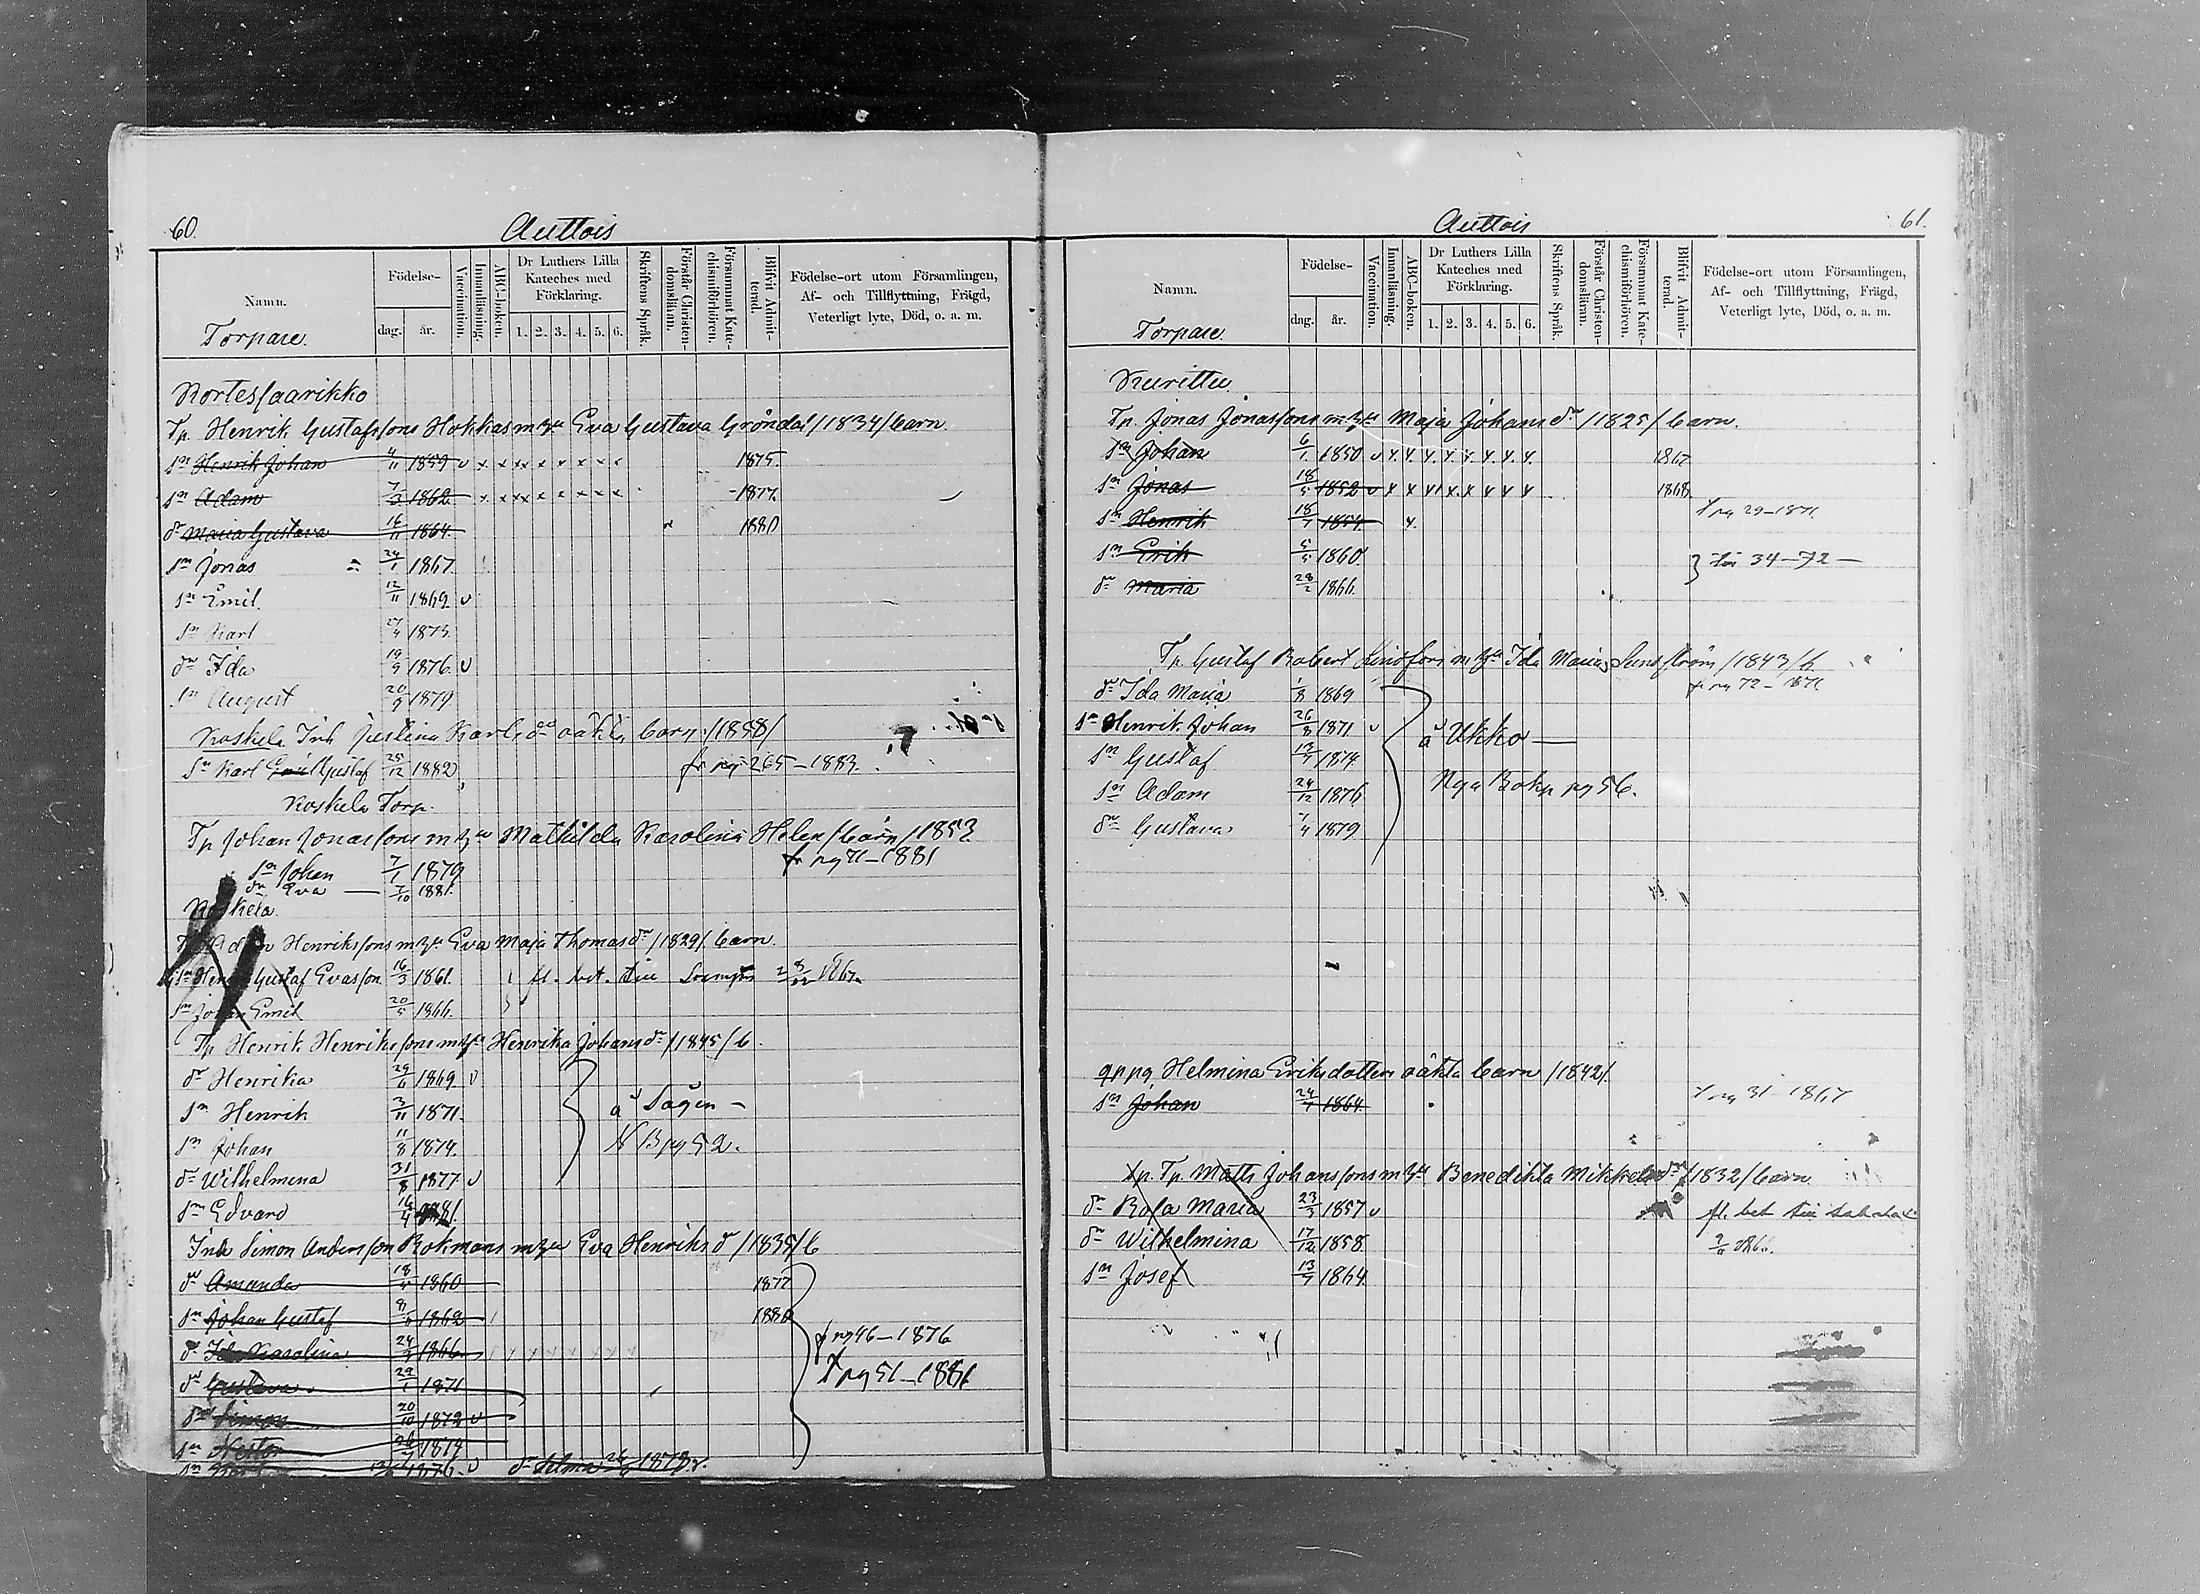 60.
Auttois
Namn.
Torpare.
Födelse-
dag.
år.
Vaccination.
Innanläsning.
ABC-boken.
Dr Luthers Lilla Kateches med Förklaring.
1. 2. 3. 4. 5. 6.
Skriftens Språk.
Förstår Christendomsläran.
Försummat Katechismiförhören.
Blifvit Admitterad.
Födelse-ort utom Församlingen, Af- och Tillflyttning, Frägd, Veterligt lyte, Död, o. a. m.
Kortessaarikko
Tp. Henrik Gustafssons Hokkas m hu Eva Gustava Gröndal /1834/ barn
sn Henrik Johan 4/11 1859 v x x x x x x x x x 1875.
sn Adam 7/3 1862 x x x x x x x x x 1877.
dr Maria Gustava 16/11 1864. 1880
sn Jonas 24/1 1867.
sn Emil 12/11 1869 v
sn Karl 27/4 1873.
dr Ida 19/9 1876. v
sn August 20/9 1879
Koskela Inh Justina Karlsdrs oäkta barn /1858/
sn Karl Gustaf 25/12 1882 fr pg 265 - 1883.
Koskela Torp.
Tp Johan Jonassons m hu Mathilda Karolina Helen /barn/ 1853
fr pg 71 - 1881
sn Johan 7/1 1879
dr Eva 7/10 1881.
Koskela.
Henrikssons m hu Eva Maja Thomasdr /1829/ barn.
Gustaf Evasson 16/3 1861. fl. bet. till
sn Johan Emil 20/5 1866.
Tp Henrik Henrikssons m hu Henrika Johansdr /1845/ b.
dr Henrika 29/6 1869 v
sn Henrik 3/11 1871. å Sågen -
sn Johan 11/8 1874. N B pg 52.
dr Wilhelmina 31/8 1877. v
sn Edvard 16/4 1881.
Inh Simon Andersson Rokmans m hu Eva Henriksd /1835/ b
dr Amanda 18/5 1860 1877
sn Johan Gustaf 1862 1880
dr Ida Karolina 1866 f pg 46 - 1876
dr Gustava 22/1 1871 t pg 51 - 1881
Simon 20/10 1872 v
sn Nestor 1874
1876. v dr Selma 1878. v.
Auttois
61.
Namn.
Torpare.
Födelse-
dag.
år.
Vaccination.
Innanläsning.
ABC-boken.
Dr Luthers Lilla Kateches med Förklaring.
1. 2. 3. 4. 5. 6.
Skriftens Språk.
Förstår Christendomsläran.
Försummat Katechismiförhören.
Blifvit Admitterad.
Födelse-ort utom Församlingen, Af- och Tillflyttning, Frägd, Veterligt lyte, Död, o. a. m.
Kurittu.
Tp. Jonas Jonassons m hu Maja Johansdr /1825/ barn.
sn Johan 6/1 1850 v x. x. x. x. x. x. x. x. 1867
sn Jonas 18/5 1852 v x x x x. x x x x 1868
sn Henrik 18/7 1854. x. t pg 29 - 1871.
sn Erik 5/5 1860. till 34 - 72 -
dr Maria 28/2 1866.
Tp Gustaf Robert Lindfors m hu Ida Maria Sundström /1843/ b
fr pg 72 - 1871
dr Ida Maria 1/8 1869
sn Henrik Johan 26/8 1871 v å Ukko
sn Gustaf 13/7 1874
sn Adam 24/12 1876 Nya Boken pg 56.
dr Gustava 7/4 1879
Helmina Eriksdotters oäkta barn /1842/.
sn Johan 24/7 1864. t pg 31 - 1867
Tp. Matts Johanssons m hu Benedikta Mikkelsdr /1832/ barn.
dr Rosa Maria 23/3 1857 v fl. bet till
dr Wilhelmina 17/12 1858.
sn Josef 13/7 1864.